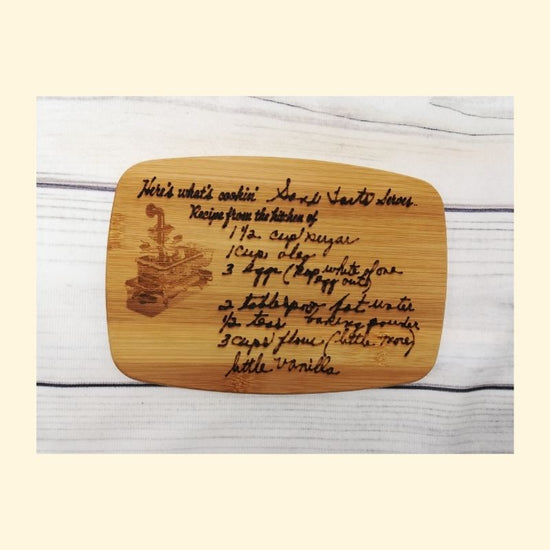 Here's what's cookin' Sand Tarts Serves
Recipe from the kitchen of
1 1/2 cup sugar
1 cup oleo
3 eggs (Keep white of one
egg out)
2 tablespoon hot water
1/2 teas baking powder
3 cups flour (little more)
little Vanilla